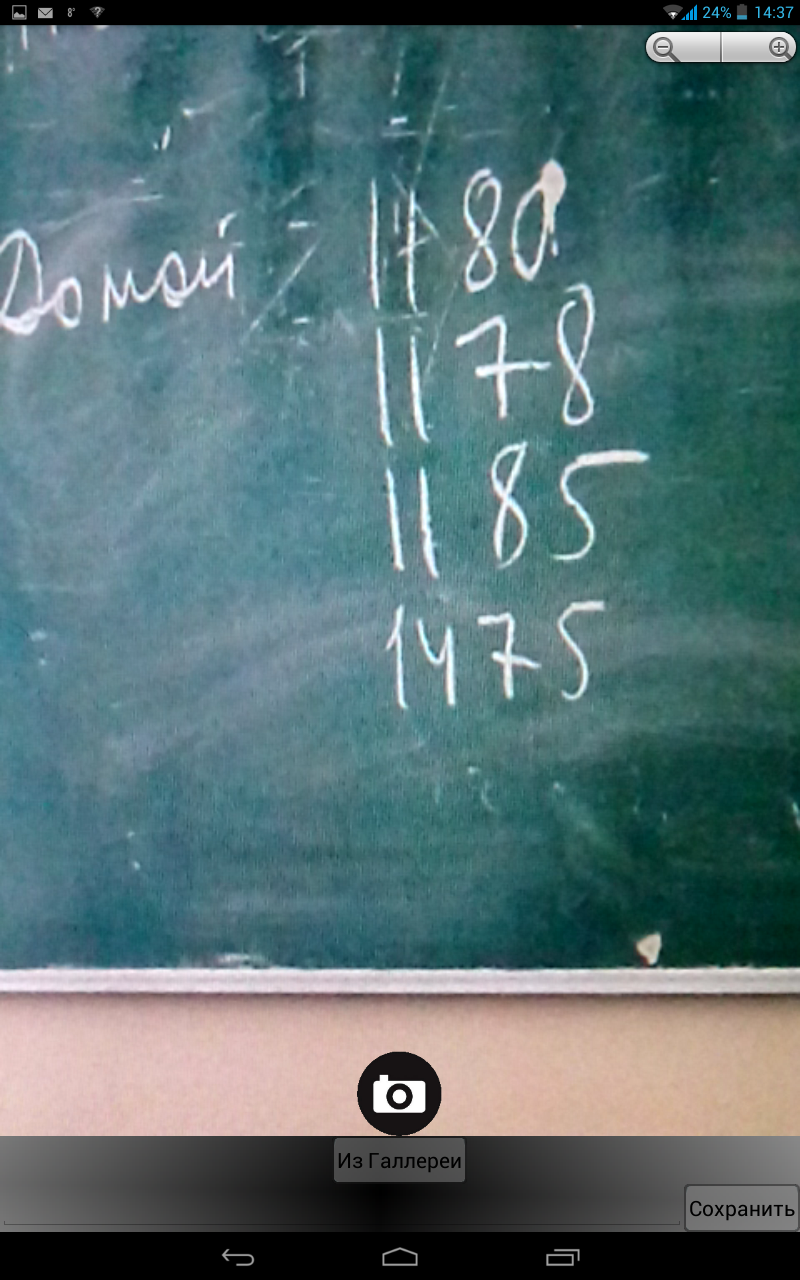 24% 14:37
Домой 1180
1178
1185
1475
Из Галлереи
Сохранить